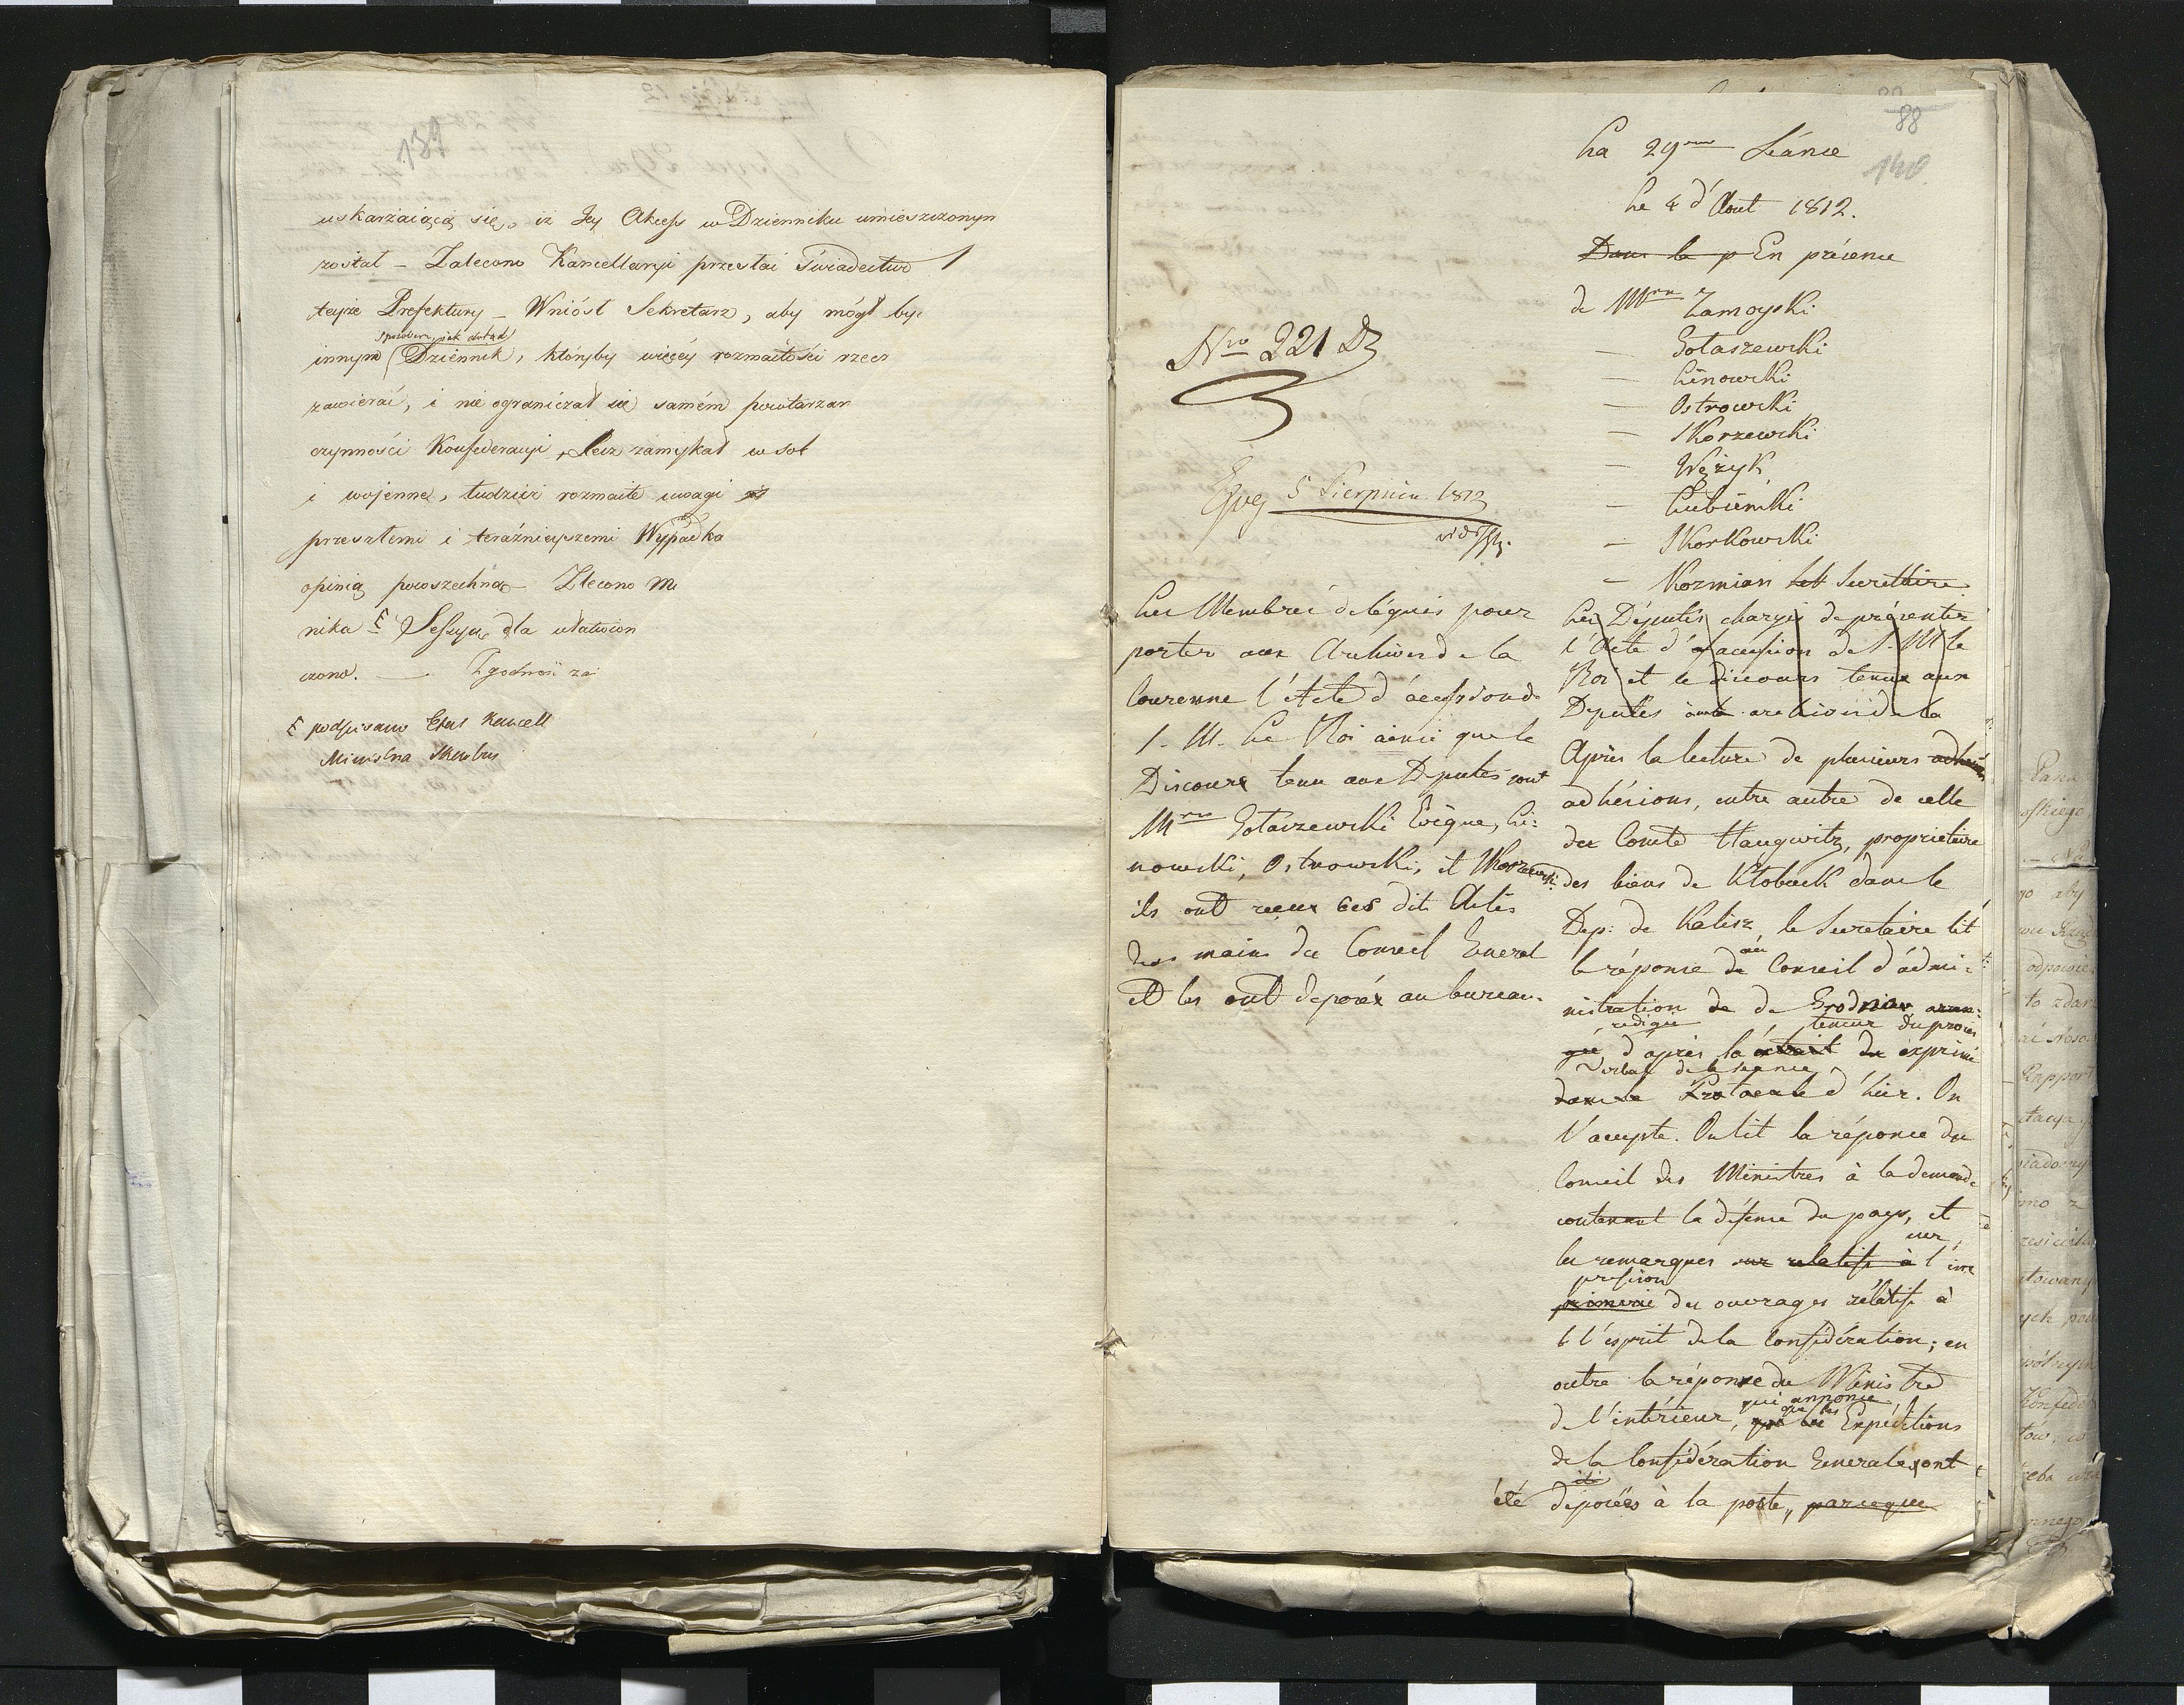 139
uskarżaiącą się, iż Jey Akcess w Dzienniku umieszczonym
został – Zalecono Kancellaryi przestać świadectwo
teyże Prefektury – Wniósł Sekretarz, aby mógł być
sposobem jak dotąd
innym Dziennik, któryby więcéy rozmaitości rzecz
zawierać, i nie ograniczał się samém powtarzan
czynności Konfederacyi, lecz zamykał w sob
i wojenne, tudzież rozmaite uwagi
przeszłemi i teraźnieyszemi Wypadka
opinią powszechną – Zlecono
nika Sessya, dla ułatwien
czono. — Zgodność za
podpisano
88
140
La 29me Séance
Le 4 d'Aout 1812.
Dans la p En présence
de Mrs Zamoyski
— Gołaszewski
— Linowski
— Ostrowski
— Skorzewski
— Wężyk
— Lubieński
— Skorkowski
— Kozmian Secrétaire
Nro 221 D
5 Sierpnia 1812
Les Membres delégués pour
porter aux Archives de la
Couronne l'Acte d'accession de
S. M. Le Roi ainsi que le
Discours tenu aux Deputés sont
Mrs Gołaszewski Evêque, Li=
nowski, Ostrowski, et Skorzewski
ils ont reçu ces dits Actes
des mains du Conseil General
et les ont deposés au bureau.
Les Députés chargés de présenter
l'Acte d'accession de S. M. le
Roi et le discours tenu aux
Députés archives de la
Après la lecture de plusieurs
adhésions, entre autre de celle
du Comte Haugwitz, proprietaire
des biens de Kłobuck dans le
Dep: de Kalisz, le Secretaire lit
au
la réponse du Conseil d'admi=
nistration de de Grodno
redigée teneur du procès
d'après la extrait du exprimé
verbal de la séance
dans le Protocole d'hier. On
l'accepte. On lit la réponse du
Conseil des Ministres à la demande
contenant la défense du pays, et
sur
les remarques sur relatifs à l'im
pression
primerie des ouvrages rélatifs à
l'esprit de la Confédération; en
outre la réponse du Ministre
qui annonce
que les
de l'intérieur, Expéditions
de la Confédération Generale sont
été déposées à la poste, parceque